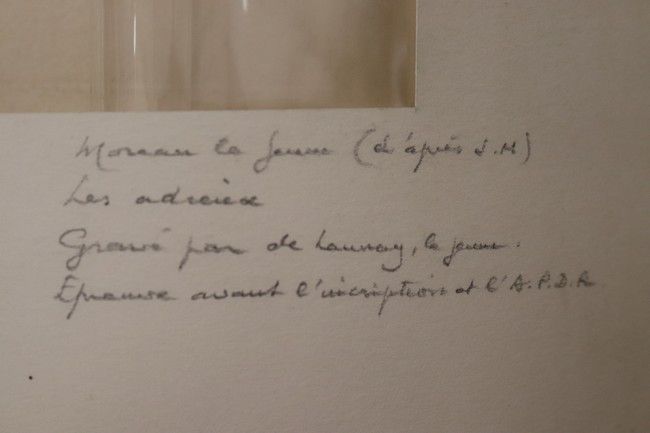 Moreau le Jeune (d'après J.M)
Les adieux
Gravé par de Launay, le jeune.
Épreuve avant l'incription et l'A.P.D.R